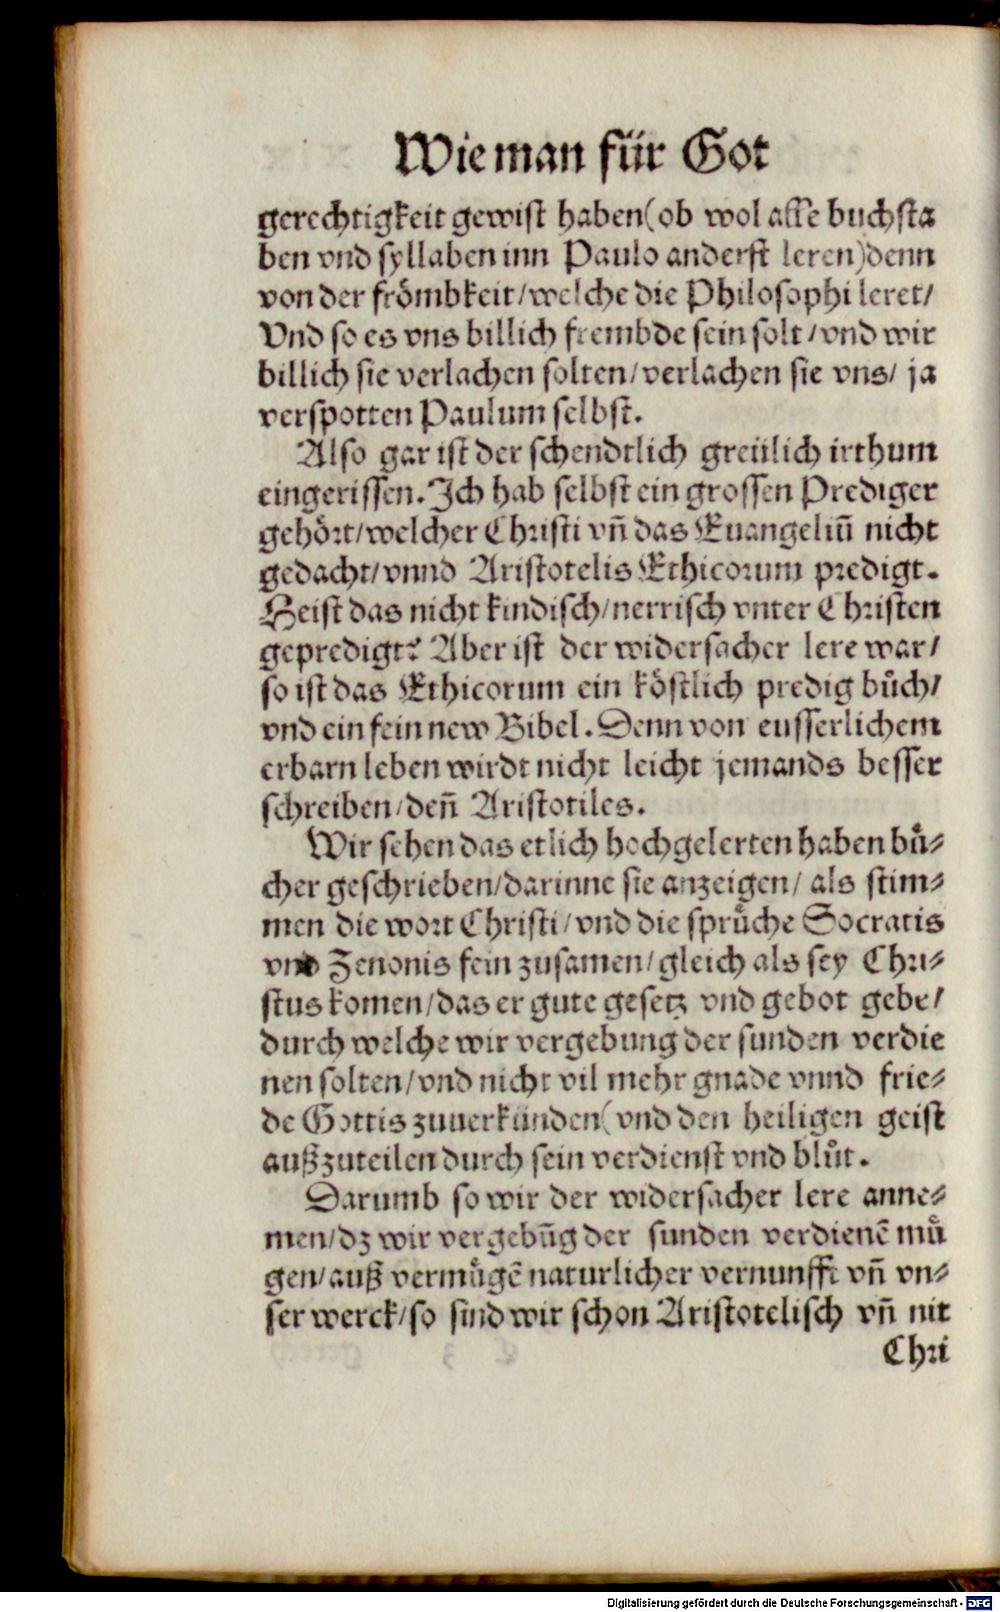 Wie man für Got
gerechtigkeit gewist haben(ob wol alle buchsta
ben vnd syllaben inn Paulo anderst leren)denn
von der frömbkeit/welche die Philosophi leret/
Vnd so es vns billich frembde sein solt/vnd wir
billich sie verlachen solten/verlachen sie vns/ ja
verspotten Paulum selbst.
Also gar ist der schendtlich greülich irthum
eingerissen. Ich hab selbst ein grossen Prediger
gehört/welcher Christi vn̄ das Euangeliū nicht
gedacht/vnnd Aristotelis Ethicorum predigt.
Heist das nicht kindisch/nerrisch vnter Christen
gepredigt? Aber ist der widersacher lere war/
so ist das Ethicorum ein köstlich predig bůch/
vnd ein fein new Bibel. Denn von eusserlichem
erbarn leben wirdt nicht leicht jemands besser
schreiben/deñ Aristotiles.
Wir sehen das etlich hochgelerten haben bů-
cher geschrieben/darinne sie anzeigen/ als stim-
men die wort Christi/vnd die sprůche Socratis
vnd Zenonis fein zusamen/gleich als sey Chri-
stus komen/das er gute gesetz vnd gebot gebe/
durch welche wir vergebung der sunden verdie
nen solten/vnd nicht vil mehr gnade vnnd frie-
de Gottis zuuerkunden(vnd den heiligen geist
außzuteilen durch sein verdienst vnd blůt.
Darumb so wir der widersacher lere anne-
men/dz wir vergebūg der sunden verdienē mů
gen/auß vermůgē naturlicher vernunfft vn̄ vn-
ser werck/so sind wir schon Aristotelisch vn̄ nit
Chri
Digitalisierung gefördert durch die Deutsche Forschungsgemeinschaft - DFG